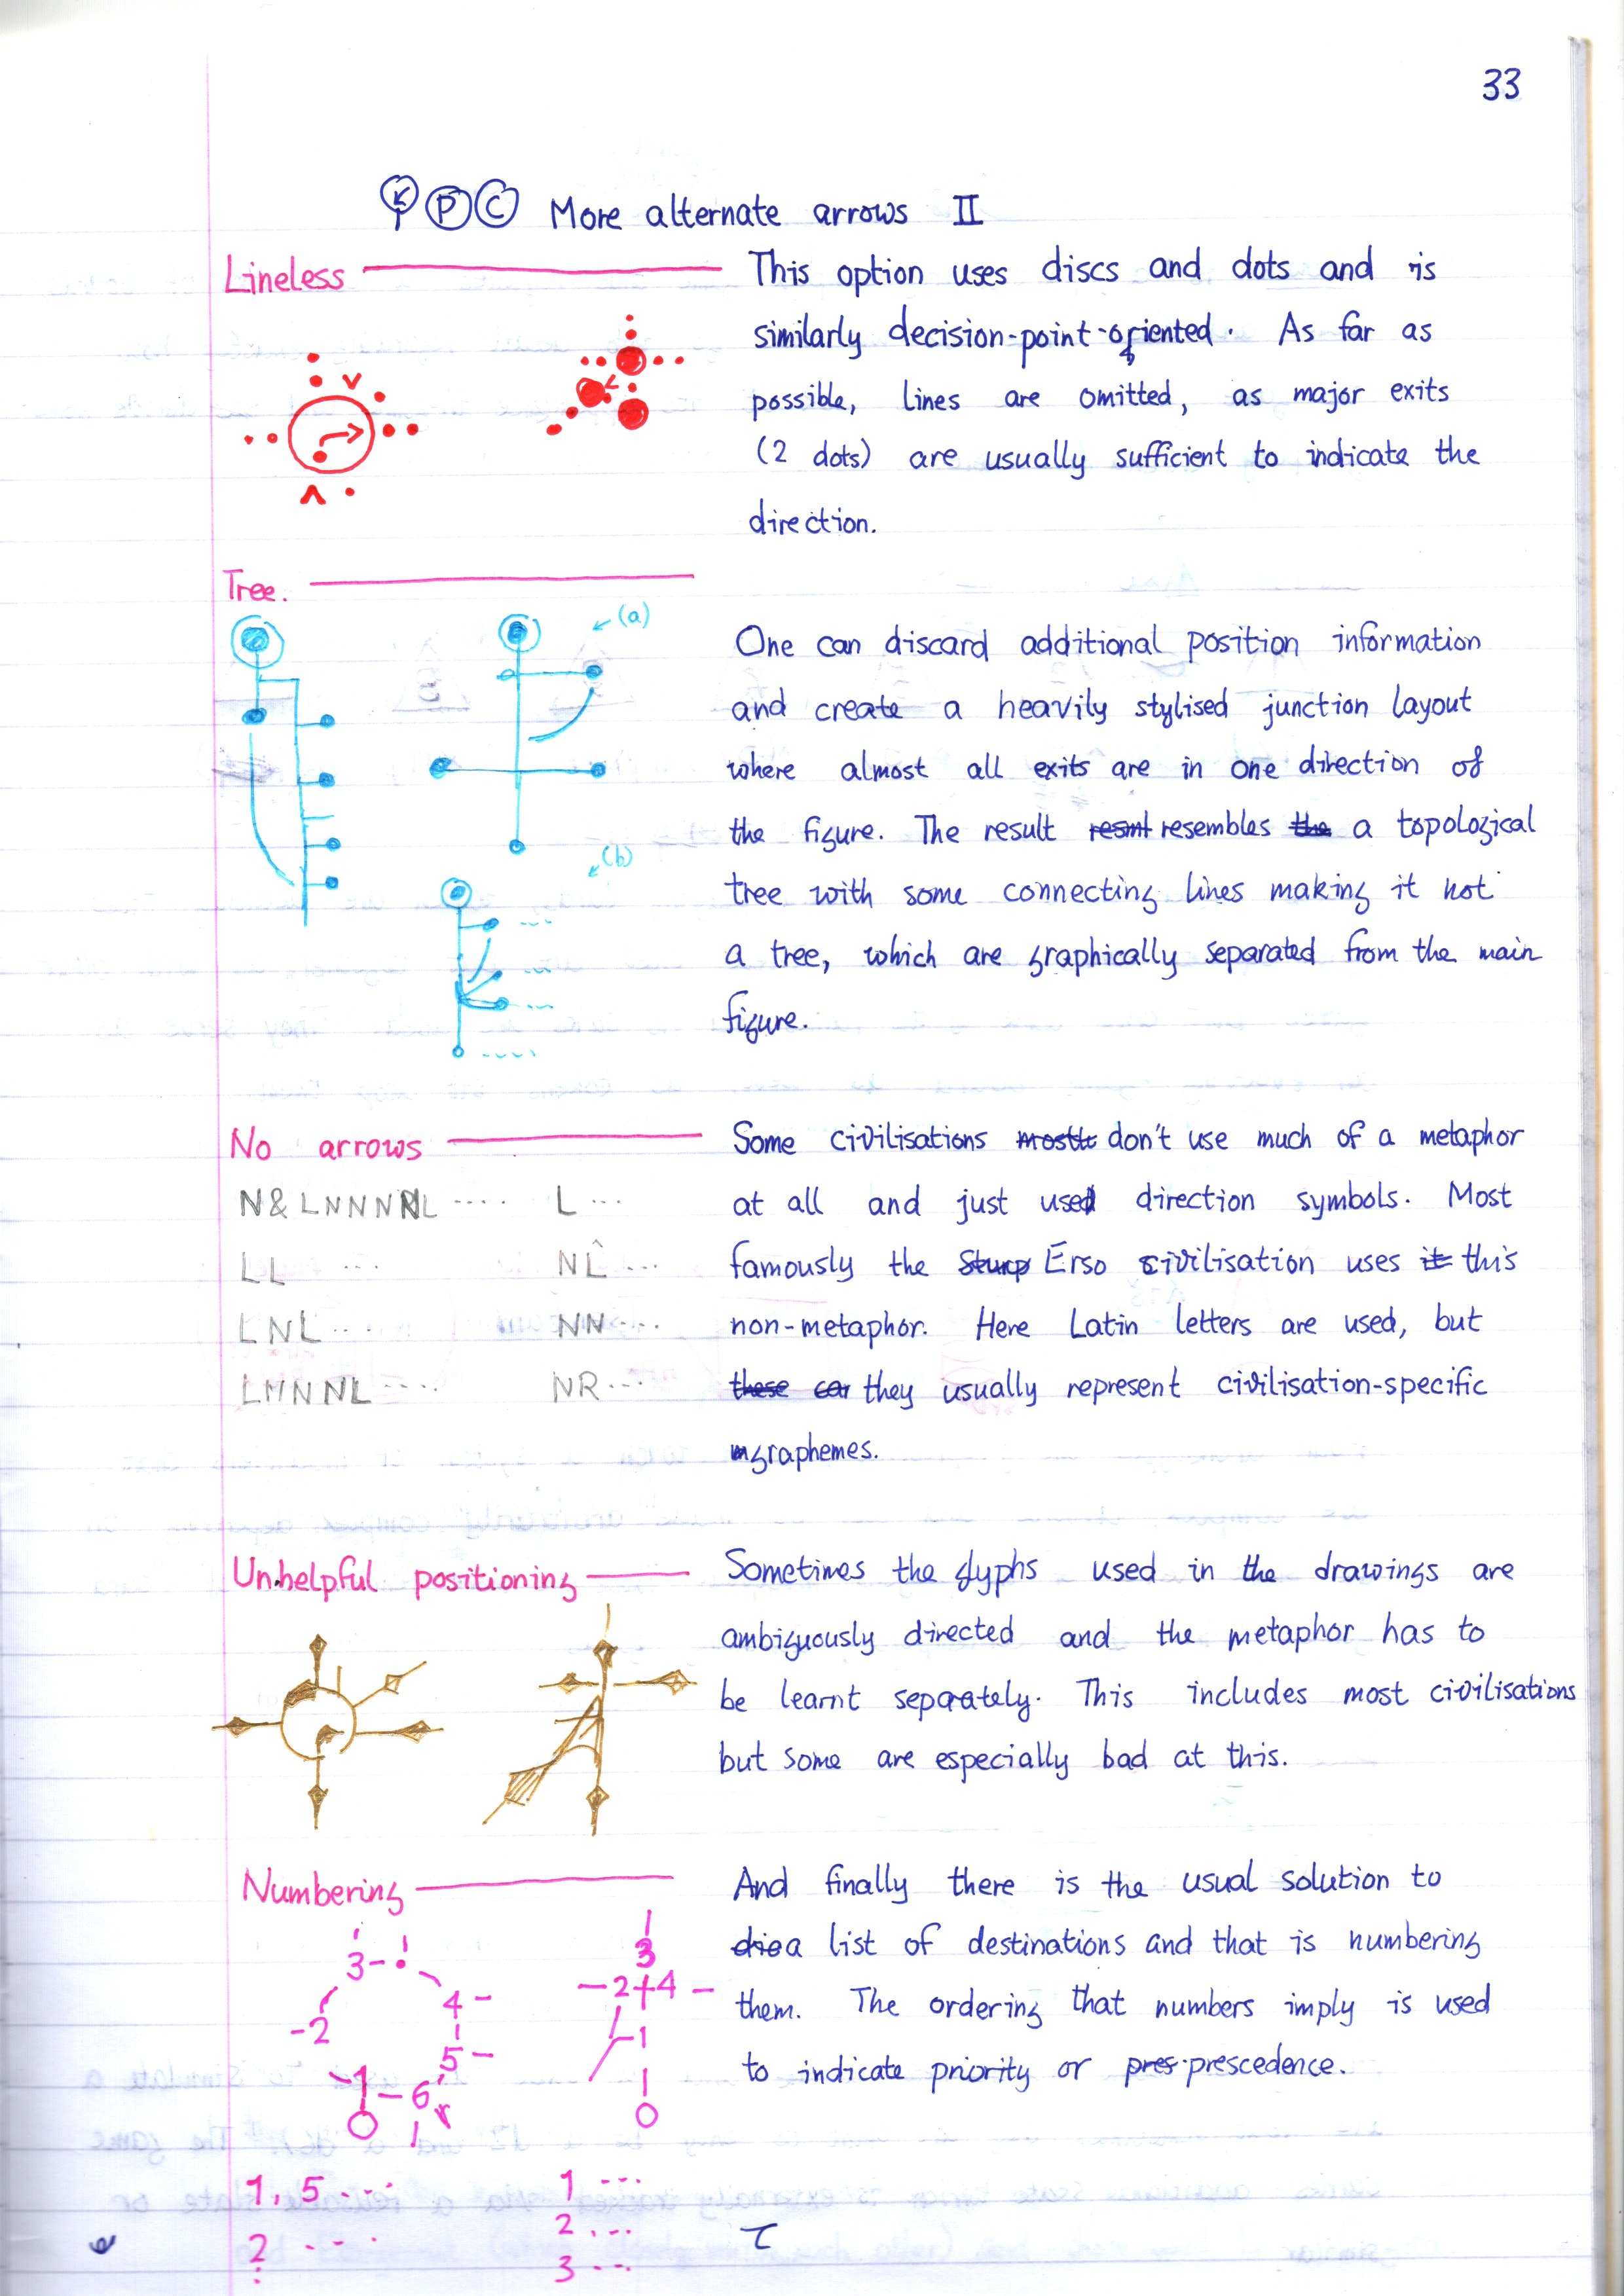 33
K P C More alternate arrows II
Lineless
This option uses discs and dots and is
similarly decision-point-oriented. As far as
possible, lines are omitted, as major exits
(2 dots) are usually sufficient to indicate the
direction.
Tree.
(a)
(b)
One can discard additional position information
and create a heavily stylised junction layout
where almost all exits are in one direction of
the figure. The result resembles a topological
tree with some connecting lines making it not
a tree, which are graphically separated from the main
figure.
No arrows
N&LNNNNL .... L ...
LL ... NL̂ ...
LNL ... NN ...
LNNNL .... NR ...
Some civilisations don't use much of a metaphor
at all and just used direction symbols. Most
famously the Erso civilisation uses this
non-metaphor. Here Latin letters are used, but
they usually represent civilisation-specific
graphemes.
Unhelpful positioning
Sometimes the glyphs used in the drawings are
ambiguously directed and the metaphor has to
be learnt separately. This includes most civilisations
but some are especially bad at this.
Numbering
3
4
2
5
1
6
3
2 4
1
1, 5 ....
2 ....
1 ....
2 ....
3 ...
And finally there is the usual solution to
a list of destinations and that is numbering
them. The ordering that numbers imply is used
to indicate priority or prescedence.